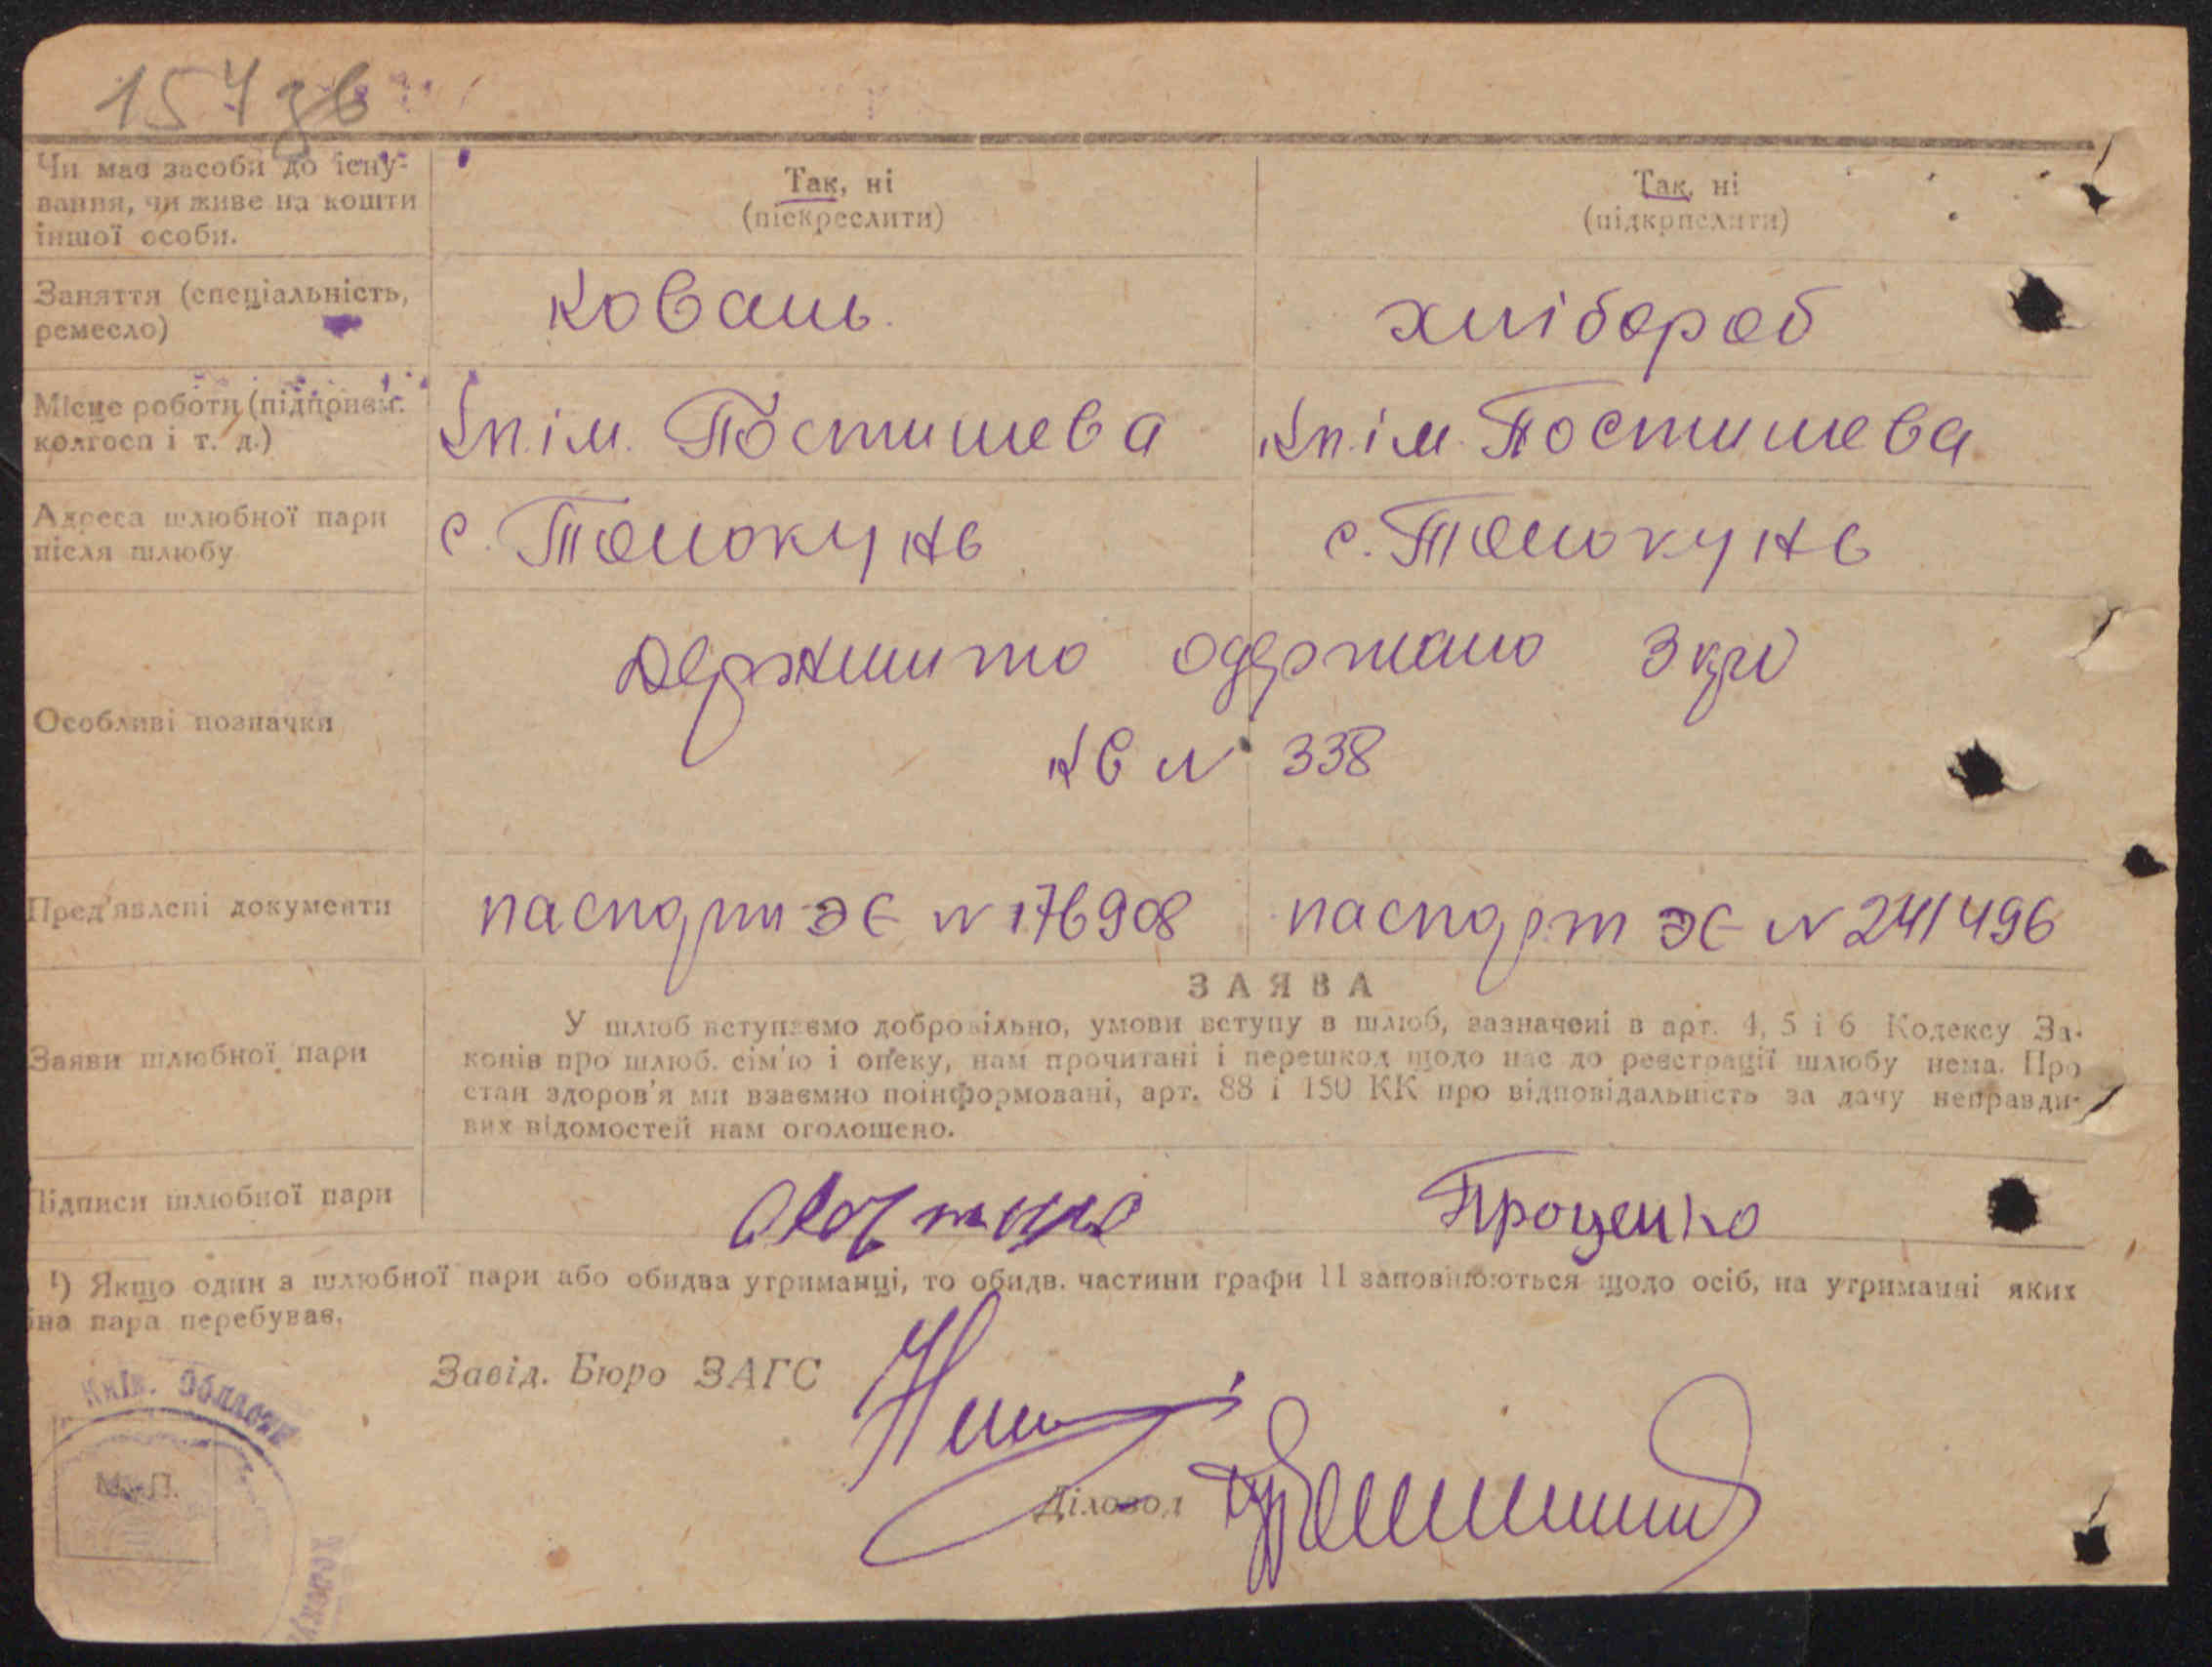 157 зв
Чи має засоби до існу-
вання, чи живе на кошти
іншої особи.
Так, ні
(піскреслити)
Так, ні
(підкрпслити)
Заняття (спеціальність,
ремесло)
коваль
хлібороб
Місце роботи (підприєм.
колгосп і т. д.)
Кп. ім. Постишева
Кп. ім. Постишева
Адреса шлюбної пари
після шлюбу
с. Толокунь
с. Толокунь
Особливі позначки
Держмито одержано 3 крб
кв № 338
Пред'явлені документи
паспорт ЭЄ № 176908
паспорт ЭЄ № 241496
Заяви шлюбної пари
ЗАЯВА
У шлюб вступаємо добровільно, умови вступу в шлюб, зазначені в арт. 4, 5 і 6 Кодексу За-
конів про шлюб. сім'ю і опеку, нам прочитані і перешкод щодо нас до реєстрації шлюбу нема. Про
стан здоров'я ми взаємно поінформовані, арт. 88 і 150 КК про відповідальність за дачу неправди-
вих відомостей нам оголошено.
Підписи шлюбної пари
Проценко
¹) Якщо один з шлюбної пари або обидва утриманці, то обидв. частини графи 11 заповнюються щодо осіб, на утриманні яких
пара перебуває.
Завід. Бюро ЗАГС
Київ. Області
М. П.
Діловод